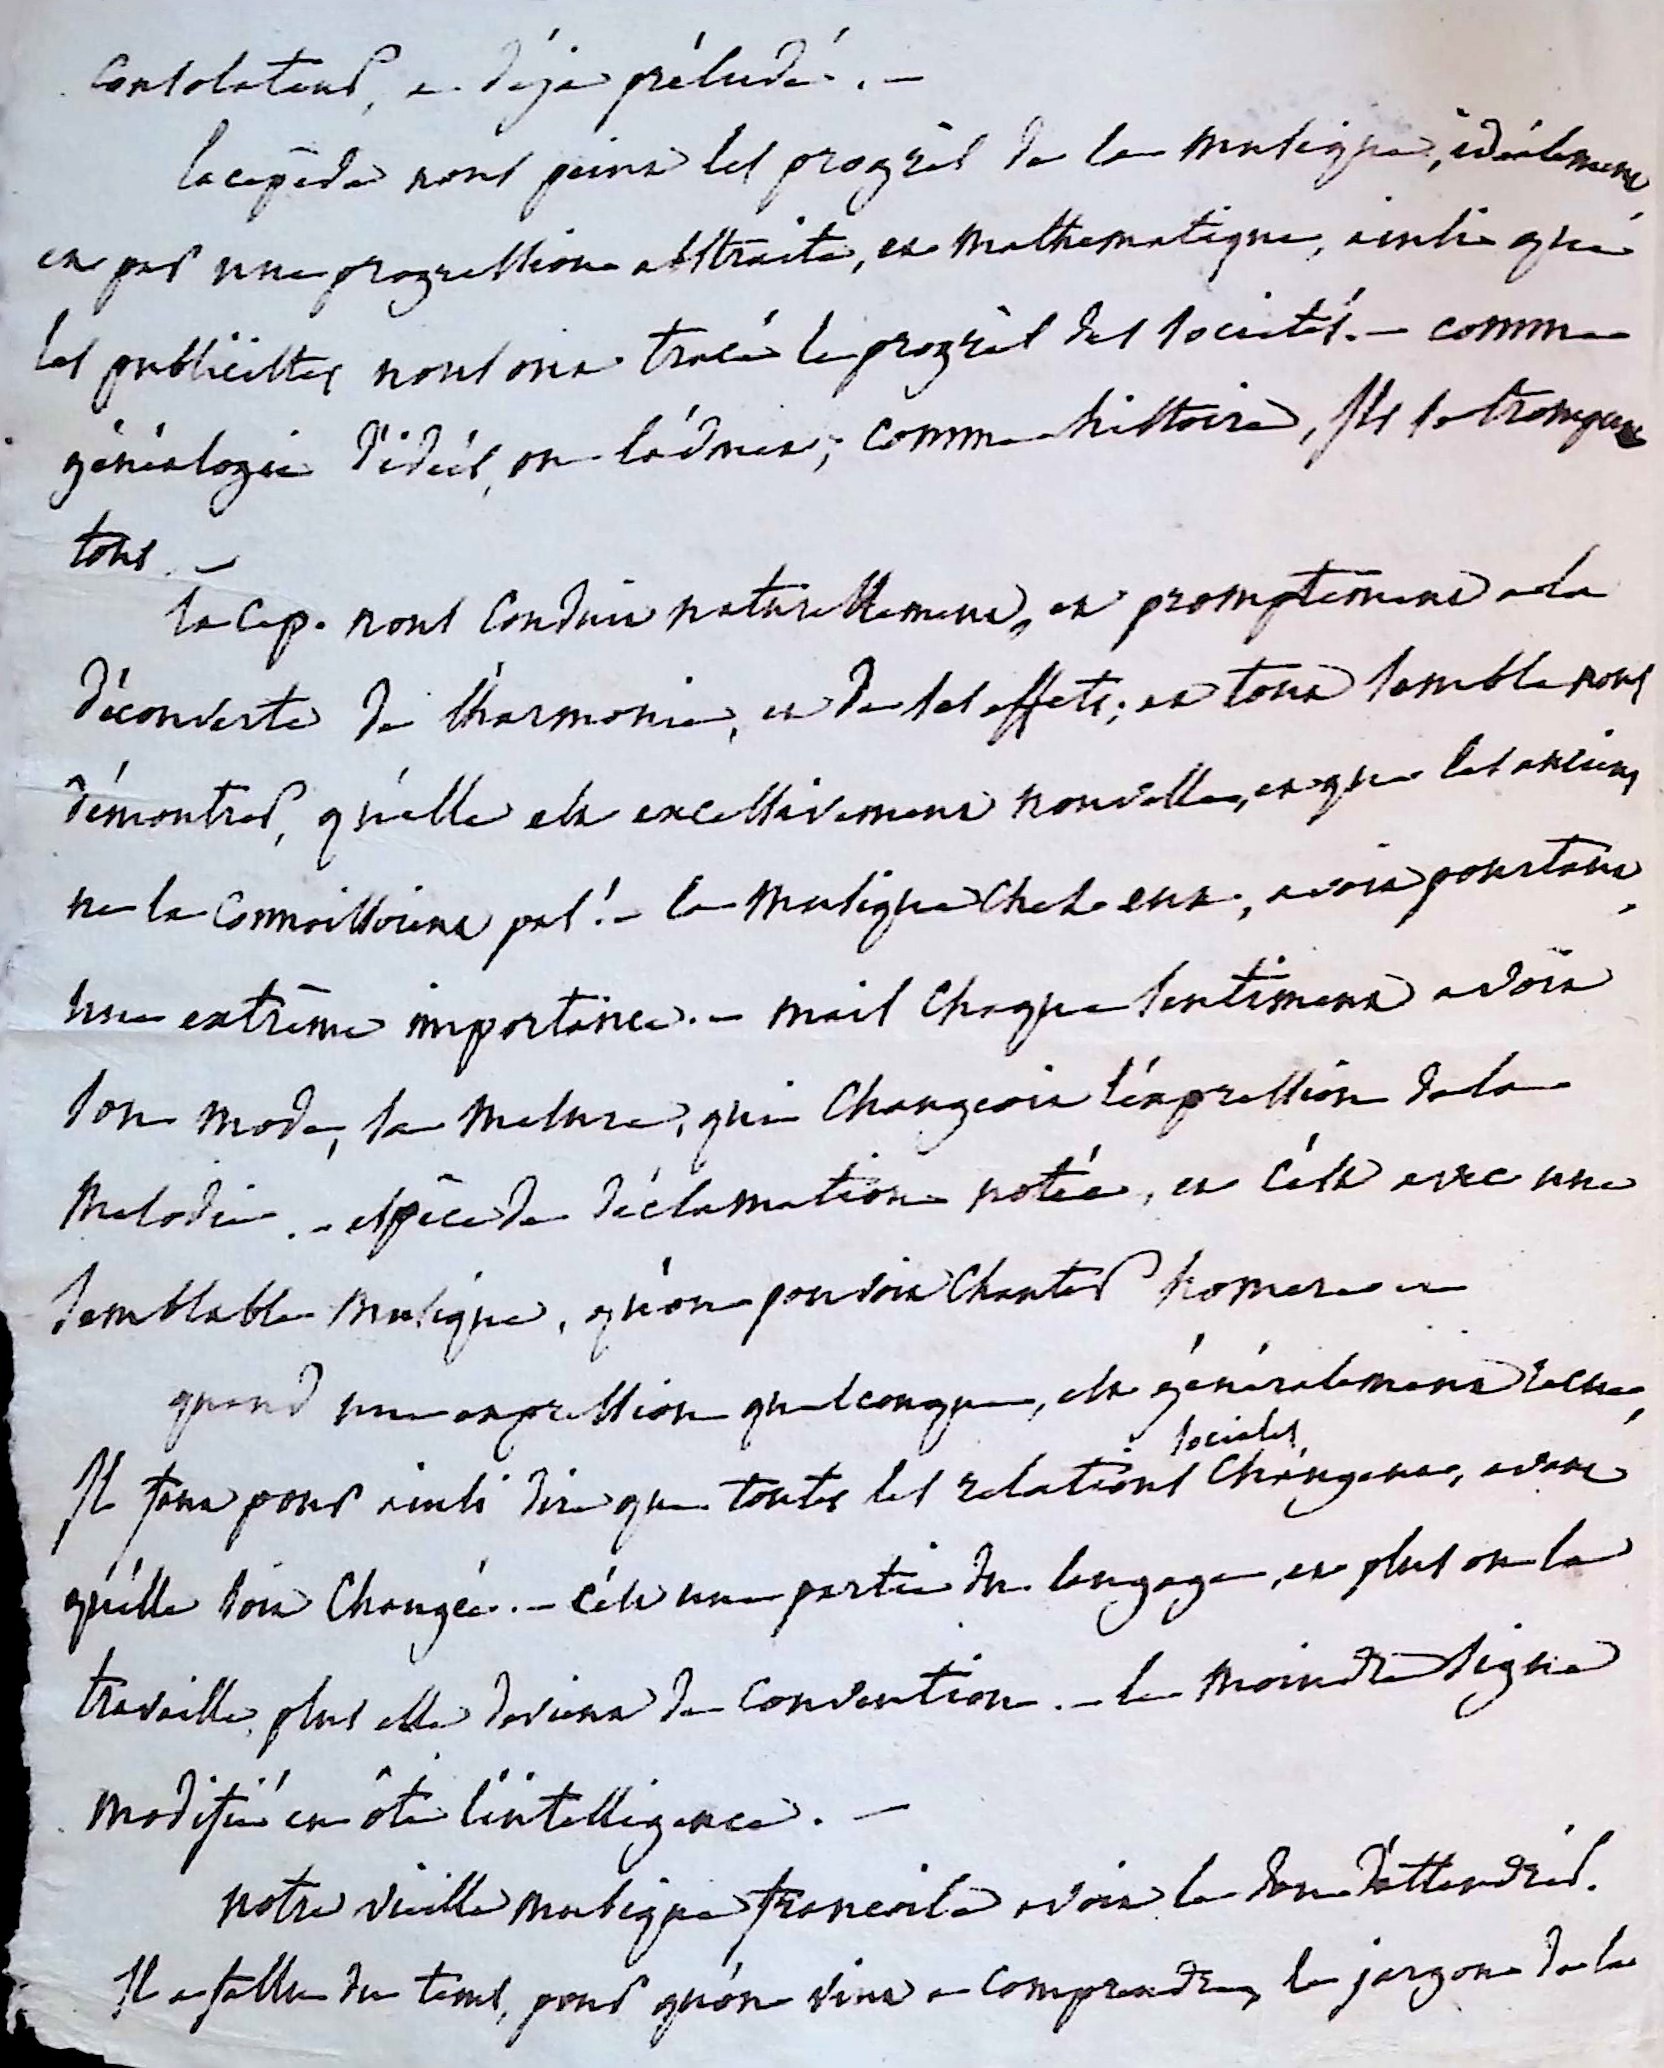 consolateur, a déja préludé. —
lacepède nous peint les progrès de la musique, idéalement
et par une progression abstraite, et mathematique, ainsi que
les publicistes nous ont tracé le progrès des sociétés. — comme
généalogie d'idées, on l'admet; comme histoire, ils se trompent
tous. —
laCep. nous conduit naturellement, et promptement a la
découverte de l'harmonie, et de ses effets; et tout semble nous
démontrer, qu'elle est excessivement nouvelle, et que les anciens
ne la connoissoient pas! — la musique chez eux, avoit pourtant,
une extrême importance. — mais chaque sentiment avoit
son mode, sa mesure, qui changeoit l'expression de la
melodie. — espèce de déclamation notée, et c'est avec une
semblable musique, qu'on pouvoit chanter homere —
quand une expression quelconque, est généralement recue,
Il faut pour ainsi dire que toutes les relations sociales changent, avant
qu'elle soit changée. — c'est une partie du langage, et plus on la
travaille, plus elle devient de convention. — le moindre signe
modifié en ôte l'intelligence. —
notre vieille musique francoise avoit le don d'attendrir.
Il a fallu du tems, pour qu'on vint a comprendre, le jargon de la